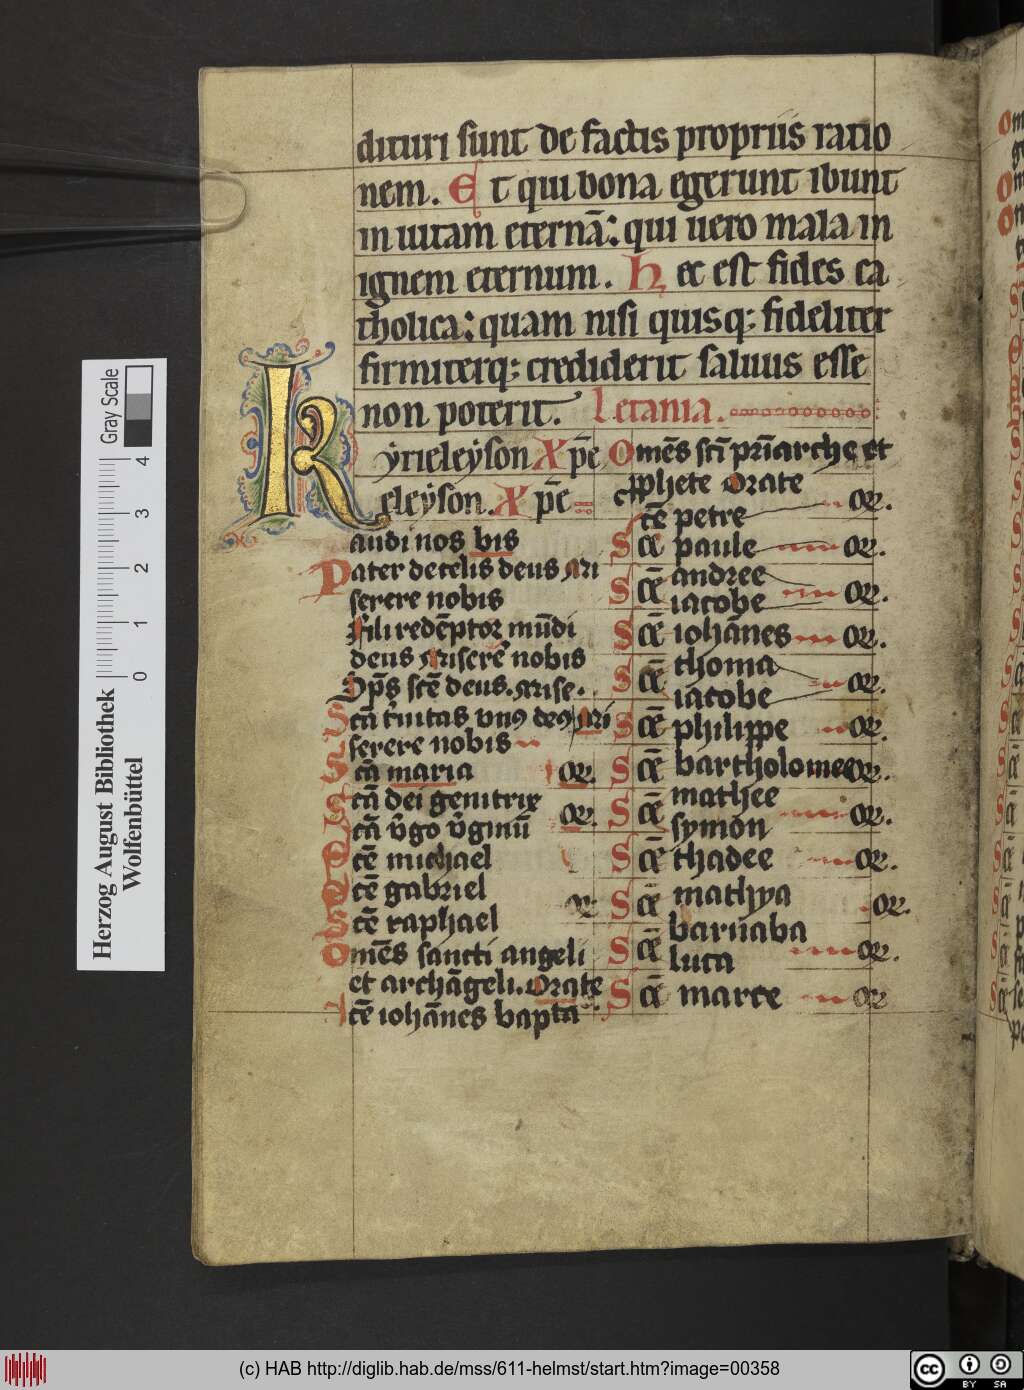 dituri sunt de factis propriis ratio
nem. Et qui bona egerunt ibunt
in uitam eternā: qui uero mala in
ignem eternum. Hec est fides ca
tholica: quam nisi quisq; fideliter
firmiterq; crediderit saluus esse
non poterit. Letania.
Kyrieleyson Xp̄e
eleyson. Xp̄e
audi nos bis
Pater de celis deus mi
serere nobis
Fili redēptor mūdi
deus miserere nobis
Sp̄s scē deus. mise.
Scā t̾nitas vn9 de9 mi
serere nobis
Scā maria or.
Scā dei genitrix
Scā v̾go v̾ginū or.
Scē michael
Scē gabriel
Scē raphael or.
Omēs sancti angeli
et archāgeli. Orate
Scē iohānes bapta
Omēs scī pri̅arche et
pphete Orate
Scē petre or.
Scē paule or.
Scē andree
iacobe or.
Scē iohānes or.
Scē thoma
iacobe or.
Scē philippe or.
Scē bartholomee or.
Scē mathee
symon or.
Scē thadee or.
Scē mathya or.
Scē barnaba
luca or.
Scē marce or
Herzog August Bibliothek
Wolfenbüttel
0 1 2 3 4
Gray Scale
(c) HAB http://diglib.hab.de/mss/611-helmst/start.htm?image=00358
cc BY SA